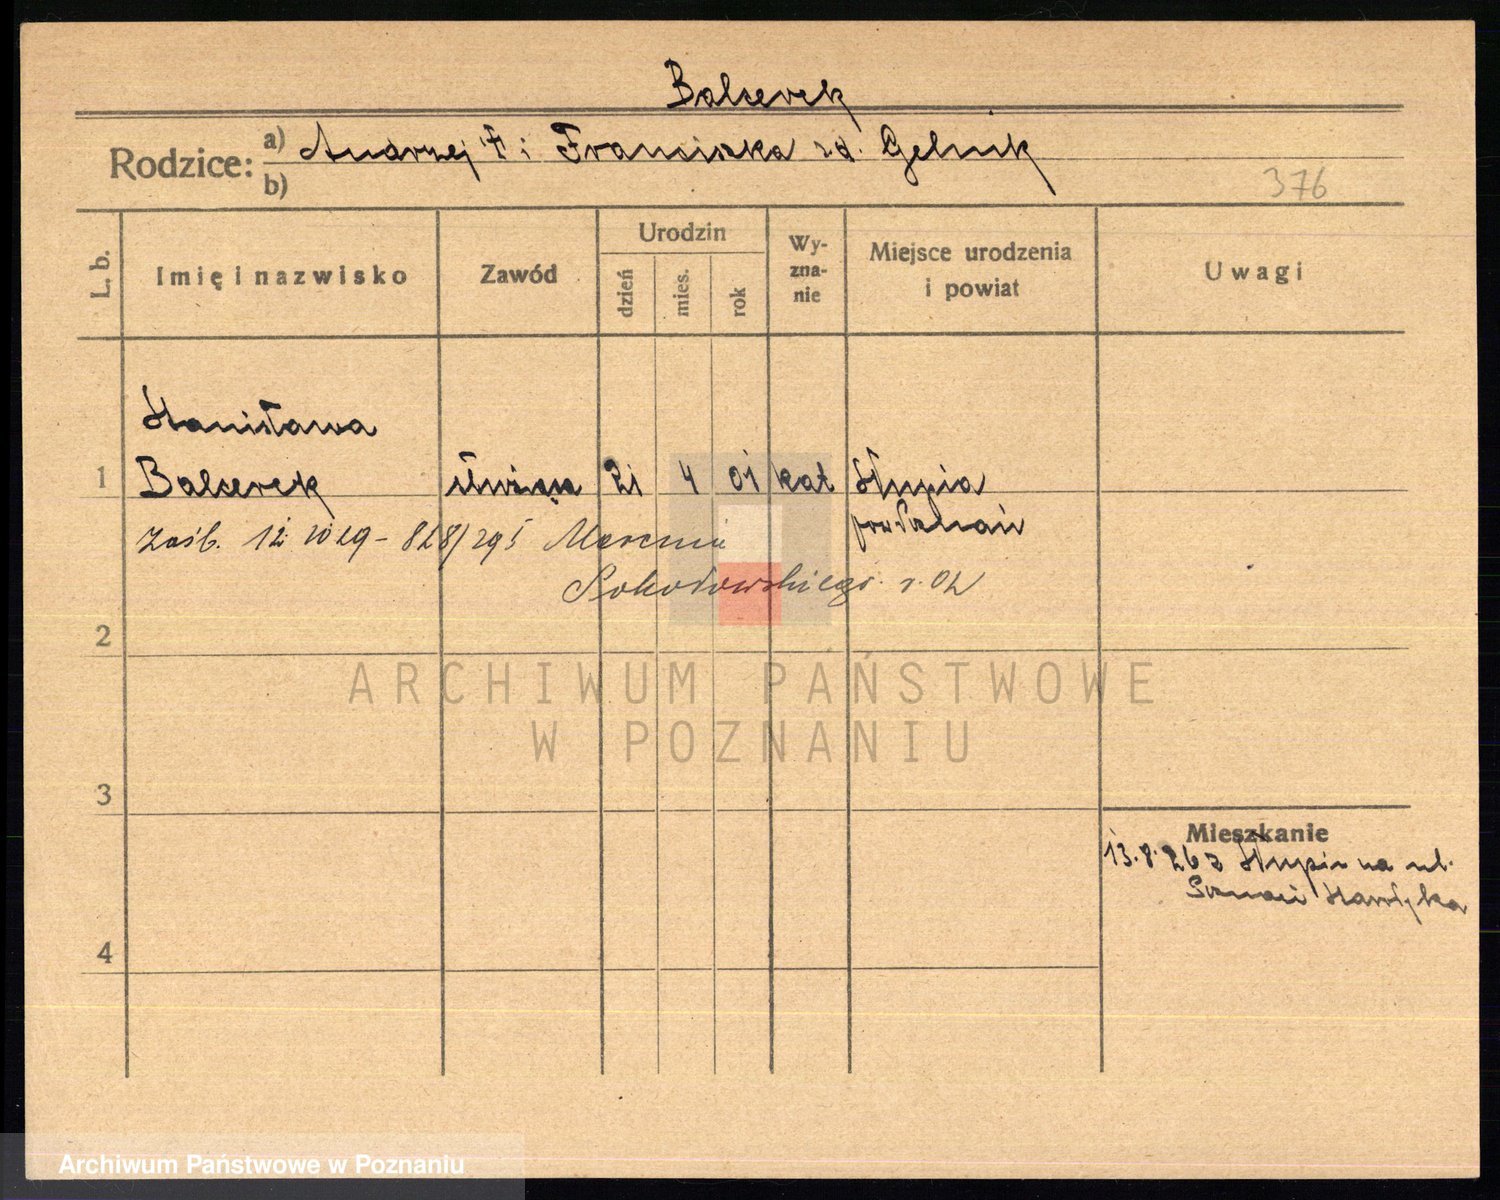 Balcerek
Rodzice: a) Andrzej † i Franciszka zd. Gelnik
b)
376
L. b. Imię i nazwisko Zawód Urodzin dzień mies. rok Wy-zna-nie Miejsce urodzenia i powiat Uwagi
Stanisława
1 Balcerek służąca 21 4 01 kat Słupia
pow. Poznań
Zaśb. 12. 10 29 - 828/295 Marcina
Sokołowskiego r. 02
2
ARCHIWUM PAŃSTWOWE
W POZNANIU
3
Mieszkanie
13.8.26 z Słupia na ul.
Poznań
4
Archiwum Państwowe w Poznaniu